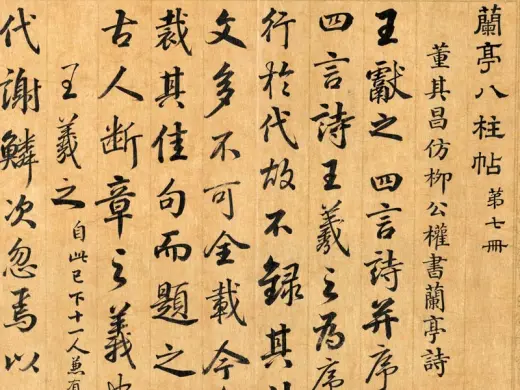 蘭亭八柱帖 第七冊
董其昌仿柳公權書蘭亭詩
王獻之四言詩并序
四言詩王羲之為序
行於代故不錄其
文多不可全載今
裁其佳句而題之
古人断章之義
王羲之 自此已下十一人兼有
代謝鱗次忽焉以